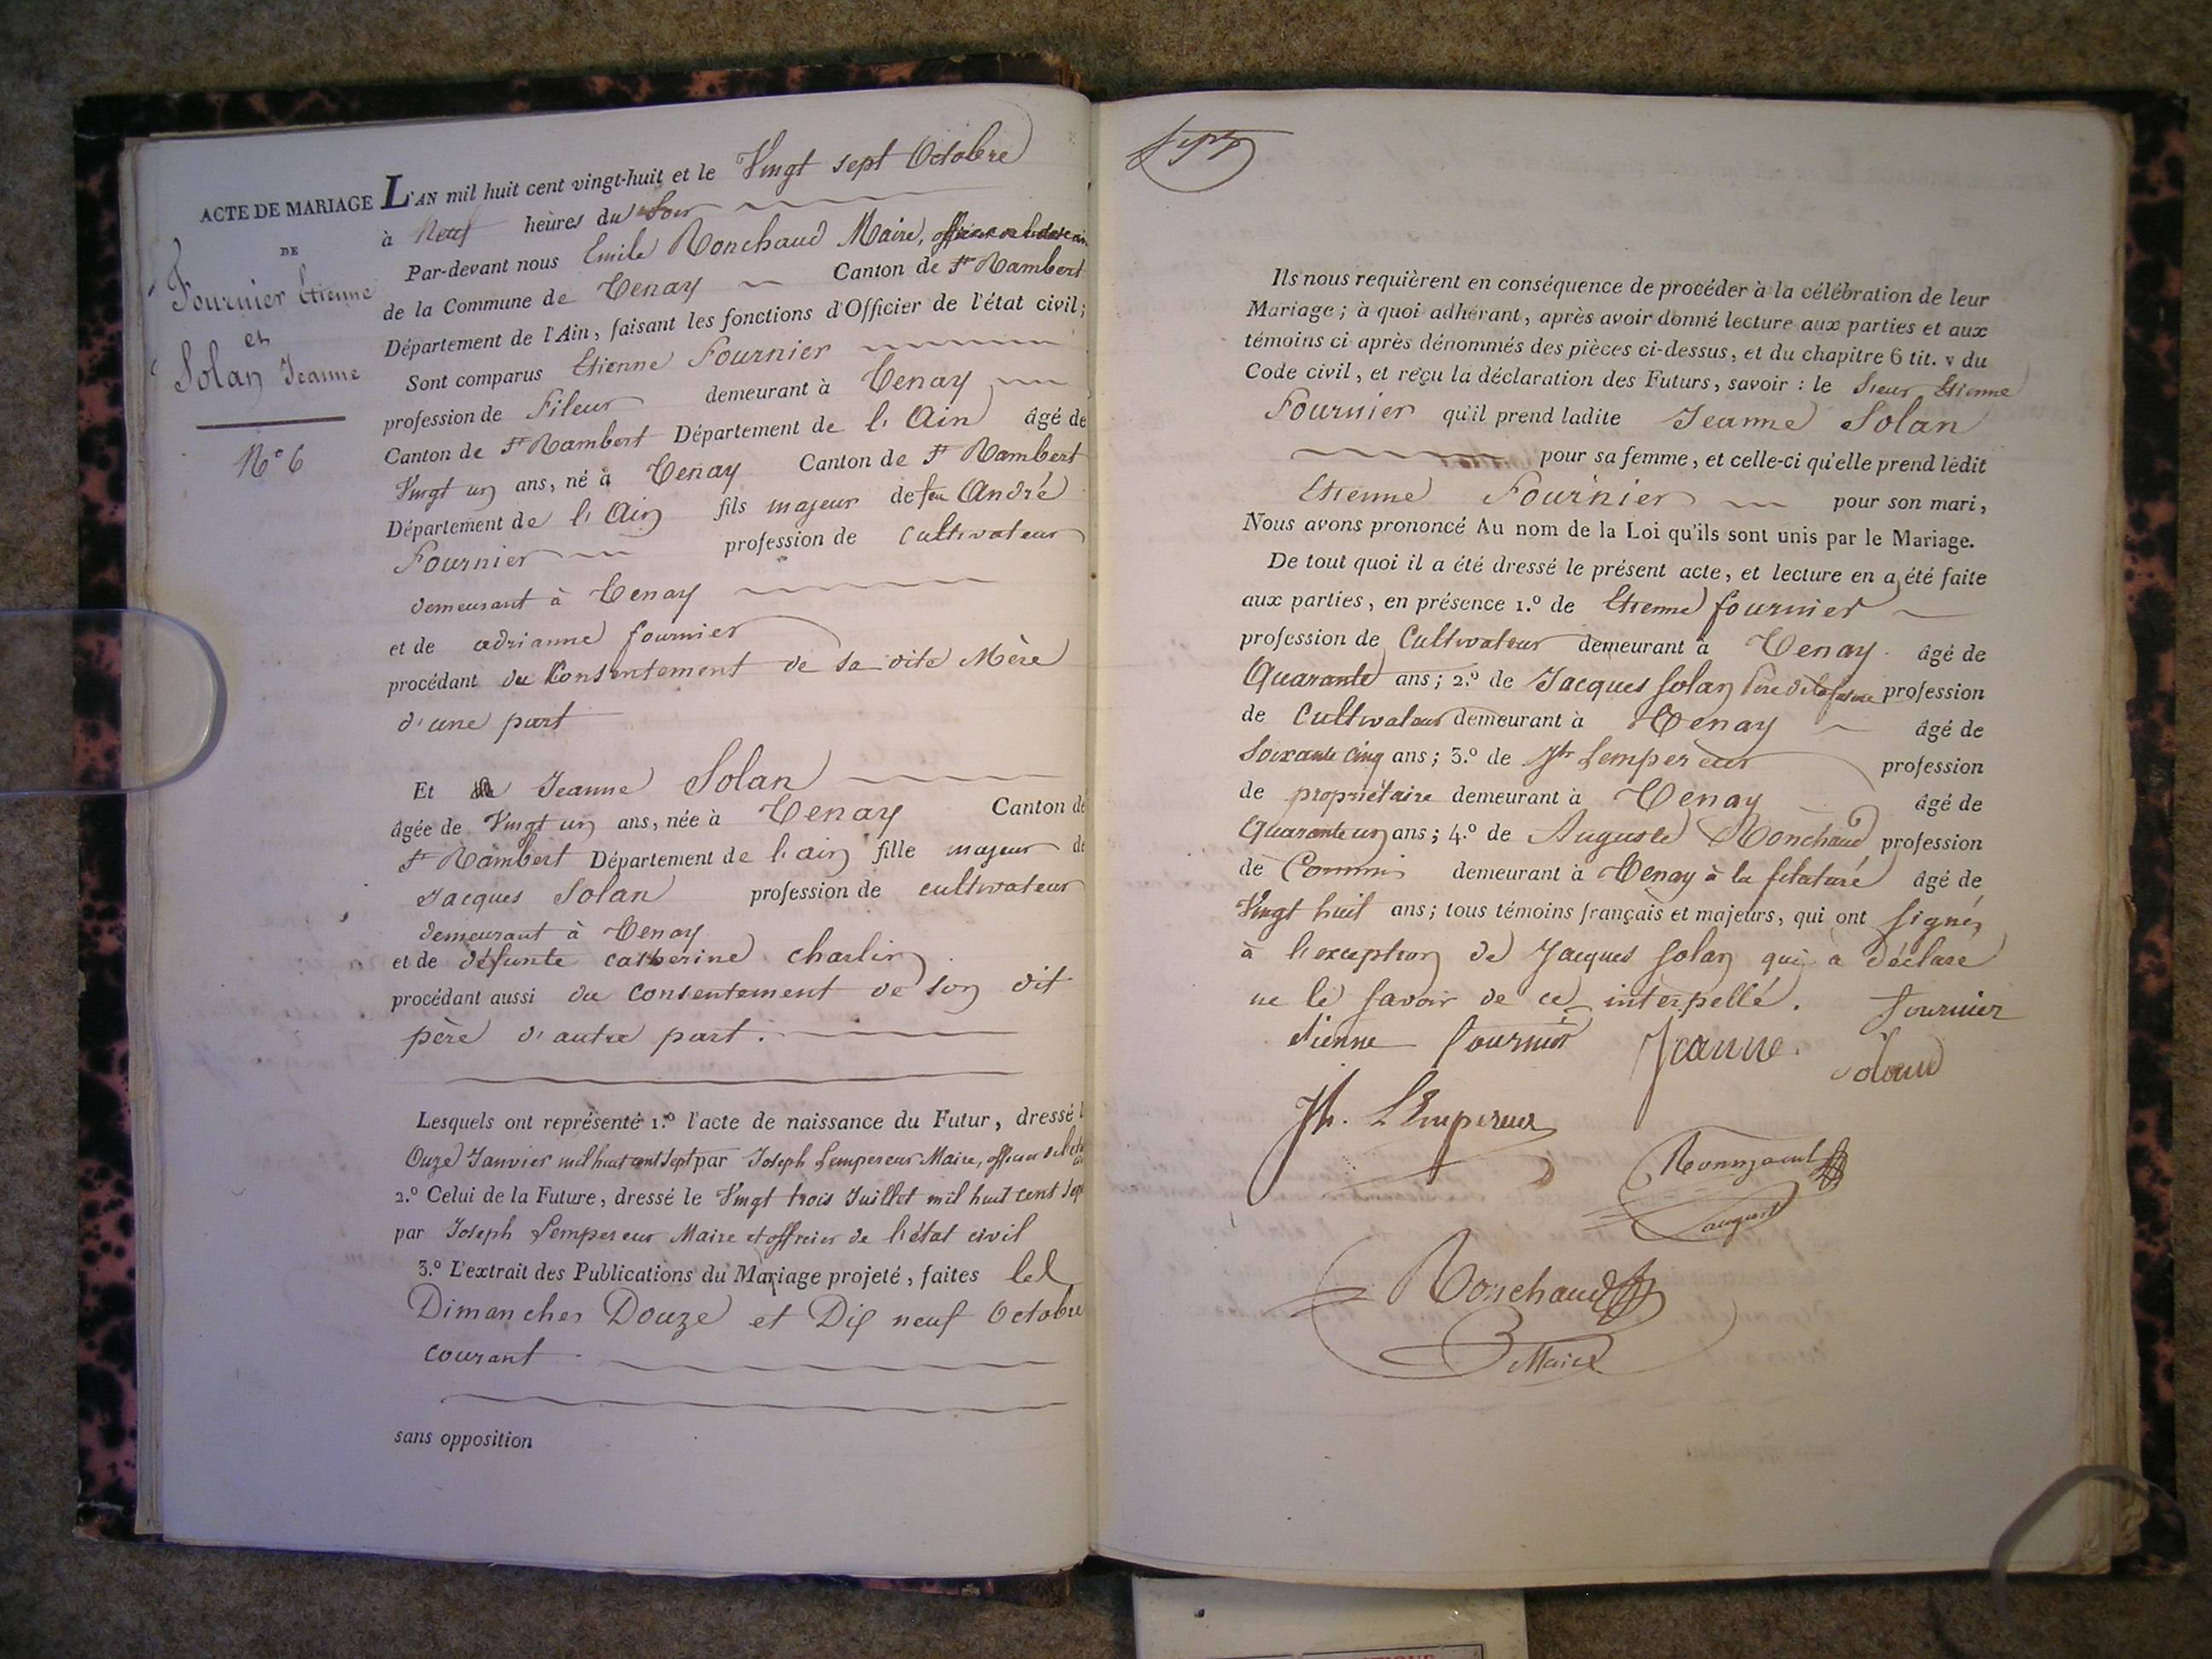 ACTE DE MARIAGE
DE
Fournier Etienne
et
Solan Jeanne
N° 6
L'AN mil huit cent vingt-huit et le Vingt sept Octobre
à Neuf heures du Soir
Par-devant nous Emile Ronchaud Maire,
de la Commune de Tenay Canton de St Rambert
Département de l'Ain, faisant les fonctions d'Officier de l'état civil;
Sont comparus Etienne Fournier
profession de Fileur demeurant à Tenay
Canton de St Rambert Département de l'Ain âgé de
Vingt un ans, né à Tenay Canton de St Rambert
Département de l'Ain fils majeur de feu André
Fournier profession de Cultivateur
demeurant à Tenay
et de adrianne fournier
procédant du Consentement de sa dite Mère
d'une part
Et Jeanne Solan
âgée de Vingt un ans, née à Tenay Canton de
St Rambert Département de l'ain fille majeur de
Jacques Solan profession de cultivateur
demeurant à Tenay
et de défunte catherine charlin
procédant aussi du consentement de son dit
père d'autre part.
Lesquels ont représenté 1.º l'acte de naissance du Futur, dressé l
Onze Janvier mil huit cent Sept par Joseph Lempereur Maire, officier de l'état
2.º Celui de la Future, dressé le Vingt trois Juillet mil huit cent Sept
par Joseph Lempereur Maire et officier de l'état civil
3.º L'extrait des Publications du Mariage projeté, faites les
Dimanches Douze et Dix neuf Octobre
courant
sans opposition
Sept
Ils nous requièrent en conséquence de procéder à la célébration de leur
Mariage; à quoi adhérant, après avoir donné lecture aux parties et aux
témoins ci après dénommés des pièces ci-dessus, et du chapitre 6 tit. v du
Code civil, et reçu la déclaration des Futurs, savoir : le Sieur Etienne
Fournier qu'il prend ladite Jeanne Solan
pour sa femme, et celle-ci qu'elle prend ledit
Etienne Fournier pour son mari,
Nous avons prononcé Au nom de la Loi qu'ils sont unis par le Mariage.
De tout quoi il a été dressé le présent acte, et lecture en a été faite
aux parties, en présence 1.º de Etienne fournier
profession de Cultivateur demeurant à Tenay âgé de
Quarante ans; 2.º de Jacques Solan Père de la future profession
de Cultivateur demeurant à Tenay âgé de
Soixante Cinq ans; 3.º de Jh Lempereur profession
de propriétaire demeurant à Tenay âgé de
Quarante un ans; 4.º de Auguste Ronchaud profession
de Commis demeurant à Tenay à la filature âgé de
Vingt huit ans; tous témoins français et majeurs, qui ont signé,
à l'exception de Jacques Solan qui a déclaré
ne le savoir de ce interpellé. fournier
etienne fournier Jeanne. Soland
Jh. LEmpereur
Ronchaud
august
Ronchaud
Maire